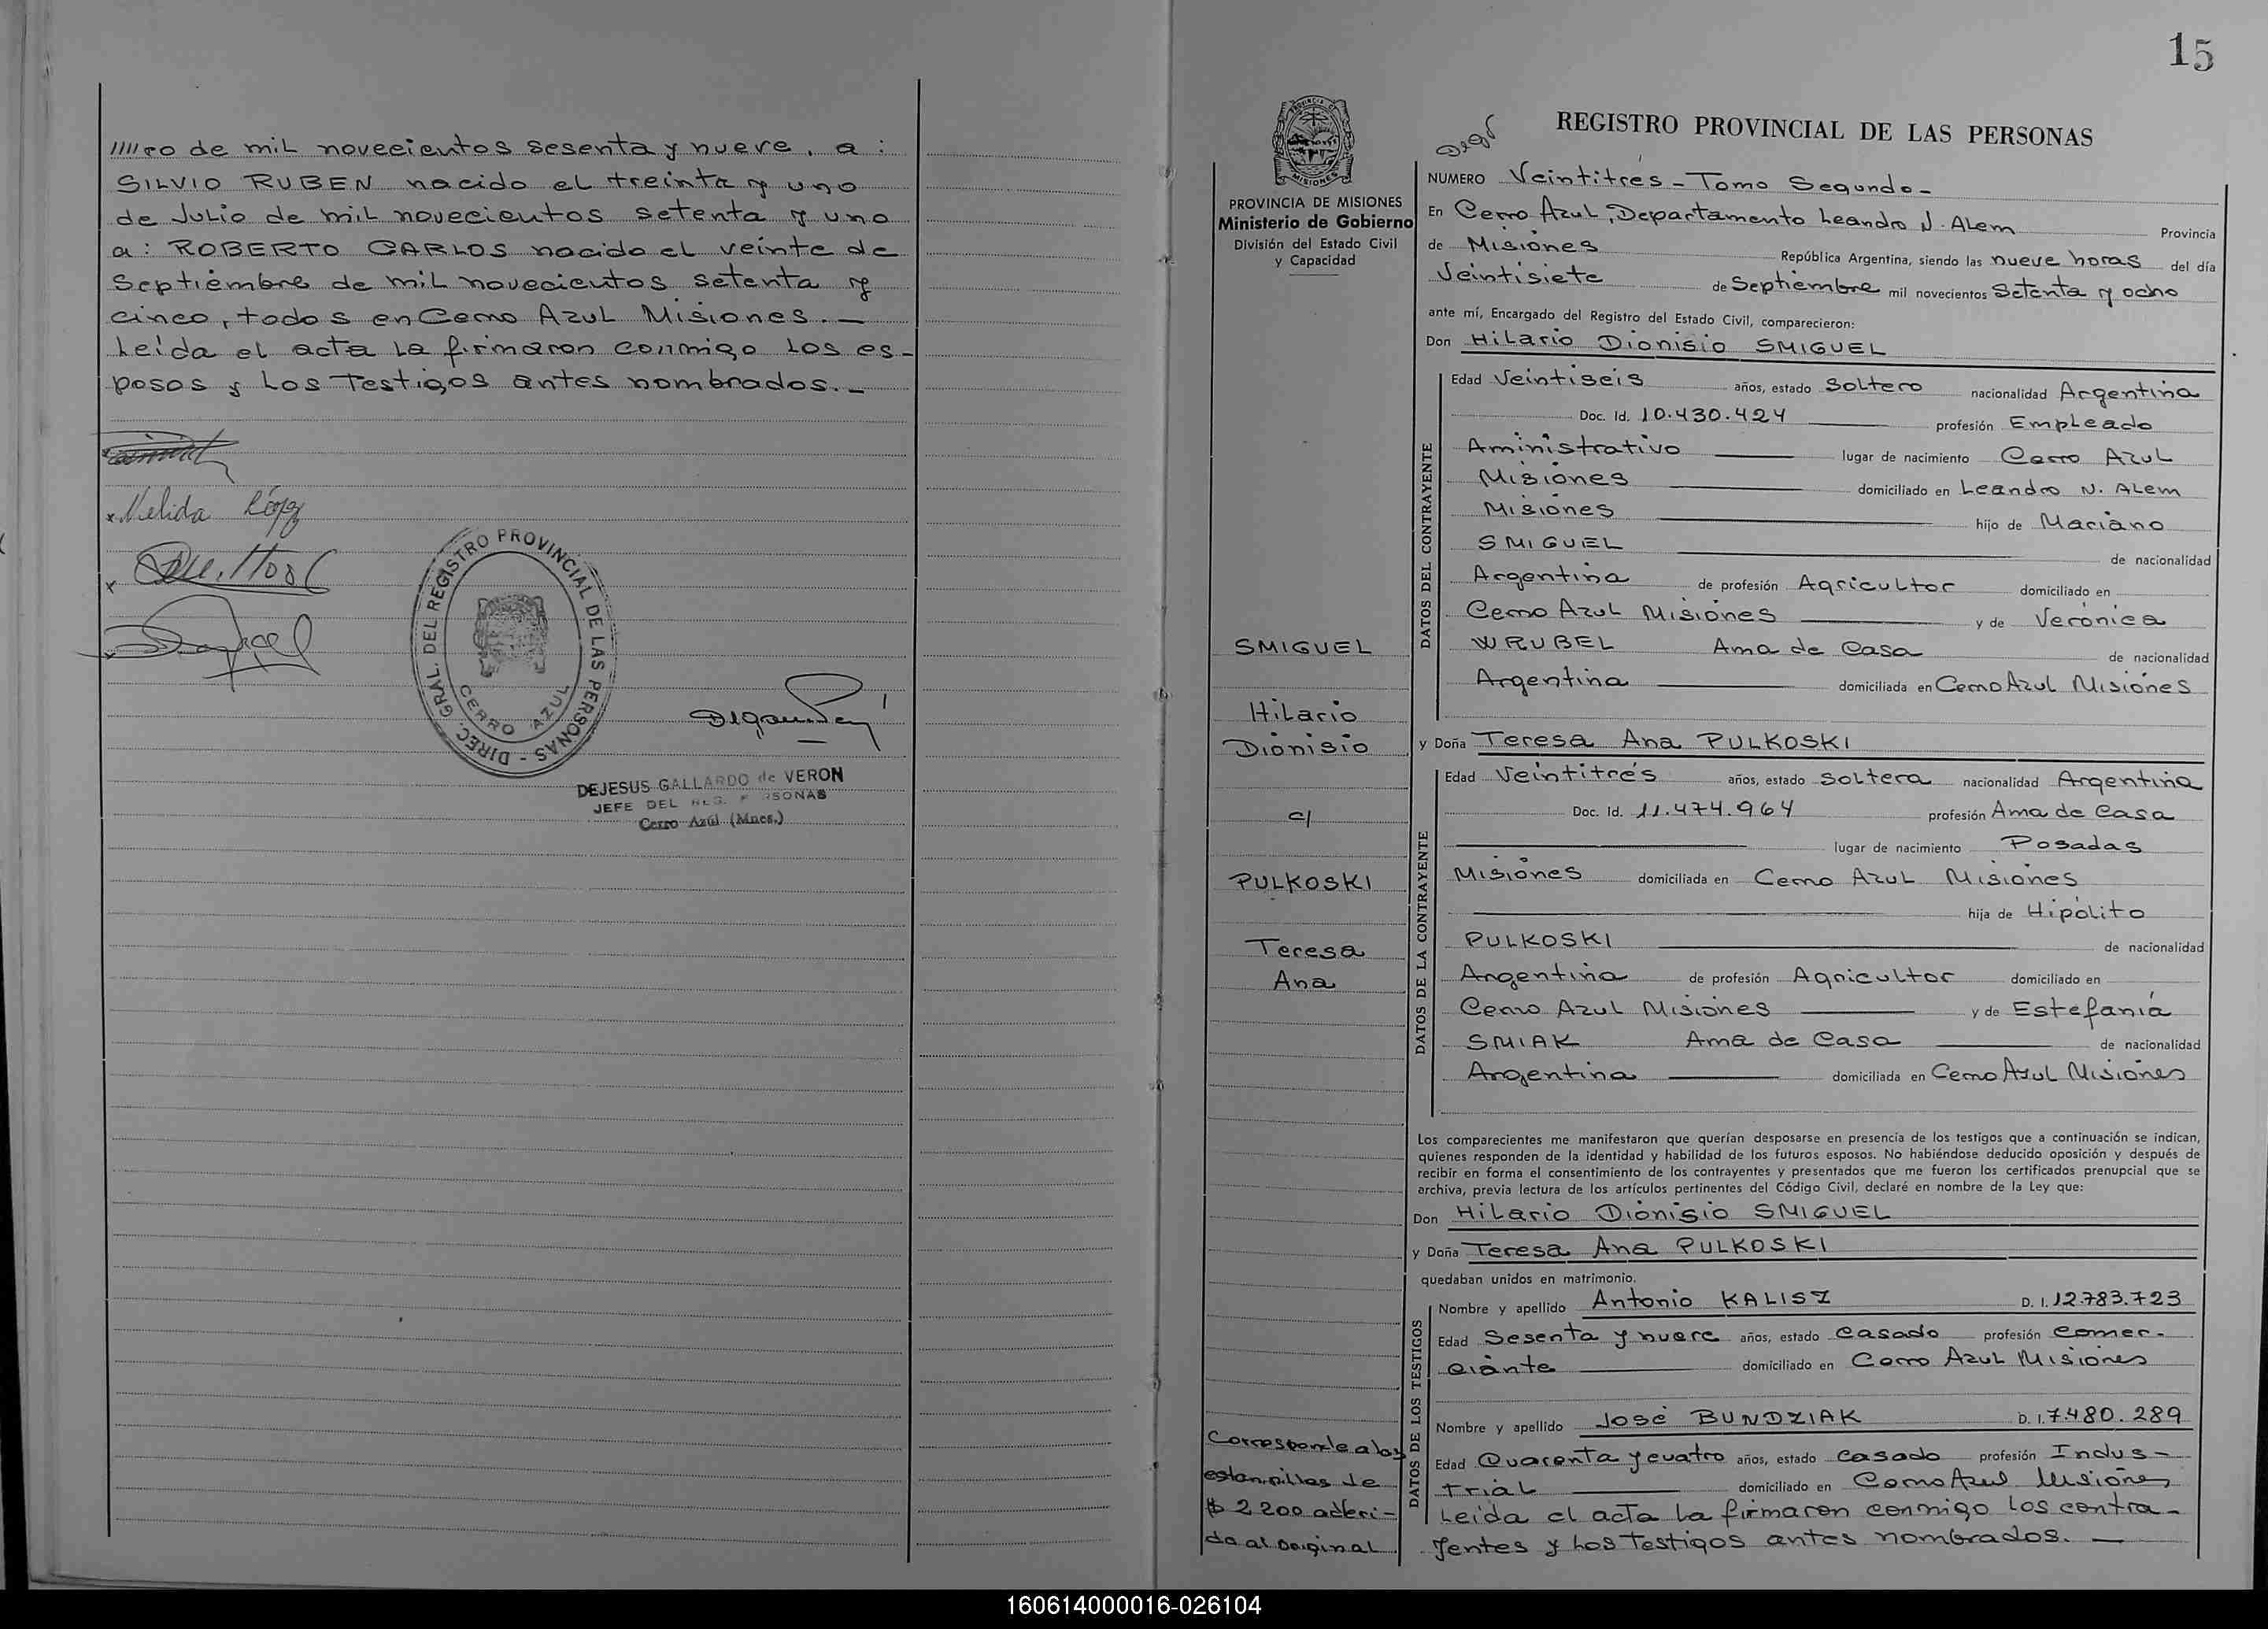 ro de mil novecientos sesenta y nueve, a:
SILVIO RUBEN nacido el treinta y uno
de Julio de mil novecientos setenta y uno
a: ROBERTO CARLOS nacido el veinte de
Septiembre de mil novecientos setenta y
cinco, todos en Cerro Azul Misiones.—
Leída el acta la firmaron conmigo los es-
posos y los Testigos antes nombrados.—
Nelida López
DIREC. GRAL. DEL REGISTRO PROVINCIAL DE LAS PERSONAS -
CERRO AZUL
DEJESUS GALLARDO de VERON
JEFE DEL REG. PERSONAS
Cerro Azúl (Mnes.)
15
PROVINCIA DE MISIONES
Ministerio de Gobierno
División del Estado Civil
y Capacidad
SMIGUEL
Hilario
Dionisio
c/
PULKOSKI
Teresa
Ana
Corresponde a las
estampillas de
$ 2.200 adheri-
da al Original
REGISTRO PROVINCIAL DE LAS PERSONAS
NUMERO Veintitrés - Tomo Segundo -
En Cerro Azul, Departamento Leandro N. Alem Provincia
de Misiones República Argentina, siendo las nueve horas del día
Veintisiete de Septiembre mil novecientos Setenta y ocho
ante mí, Encargado del Registro del Estado Civil, comparecieron:
Don Hilario Dionisio SMIGUEL
Edad Veintiseis años, estado Soltero nacionalidad Argentina
Doc. Id. 10.430.424 profesión Empleado
Aministrativo lugar de nacimiento Cerro Azul
Misiones domiciliado en Leandro N. Alem
Misiones hijo de Mariano
SMIGUEL de nacionalidad
Argentina de profesión Agricultor domiciliado en
Cerro Azul Misiones y de Verónica
WRUBEL Ama de Casa de nacionalidad
Argentina domiciliada en Cerro Azul Misiones
DATOS DEL CONTRAYENTE
y Doña Teresa Ana PULKOSKI
Edad Veintitrés años, estado Soltera nacionalidad Argentina
Doc. Id. 11.474.964 profesión Ama de Casa
lugar de nacimiento Posadas
Misiones domiciliada en Cerro Azul Misiones
hija de Hipólito
PULKOSKI de nacionalidad
Argentina de profesión Agricultor domiciliado en
Cerro Azul Misiones y de Estefanía
SMIAK Ama de Casa de nacionalidad
Argentina domiciliada en Cerro Azul Misiones
DATOS DE LA CONTRAYENTE
Los comparecientes me manifestaron que querían desposarse en presencia de los testigos que a continuación se indican,
quienes responden de la identidad y habilidad de los futuros esposos. No habiéndose deducido oposición y después de
recibir en forma el consentimiento de los contrayentes y presentados que me fueron los certificados prenupcial que se
archiva, previa lectura de los artículos pertinentes del Código Civil, declaré en nombre de la Ley que:
Don Hilario Dionisio SMIGUEL
y Doña Teresa Ana PULKOSKI
quedaban unidos en matrimonio.
Nombre y apellido Antonio KALISZ D. I. 12.783.723
Edad Sesenta y nueve años, estado Casado profesión Comer-
ciante domiciliado en Cerro Azul Misiones
Nombre y apellido José BUNDZIAK D. I. 7.480.289
Edad Cuarenta y cuatro años, estado Casado profesión Indus-
trial domiciliado en Cerro Azul Misiones
DATOS DE LOS TESTIGOS
Leída el acta la firmaron conmigo los contra-
yentes y los Testigos antes nombrados.—
160614000016-026104